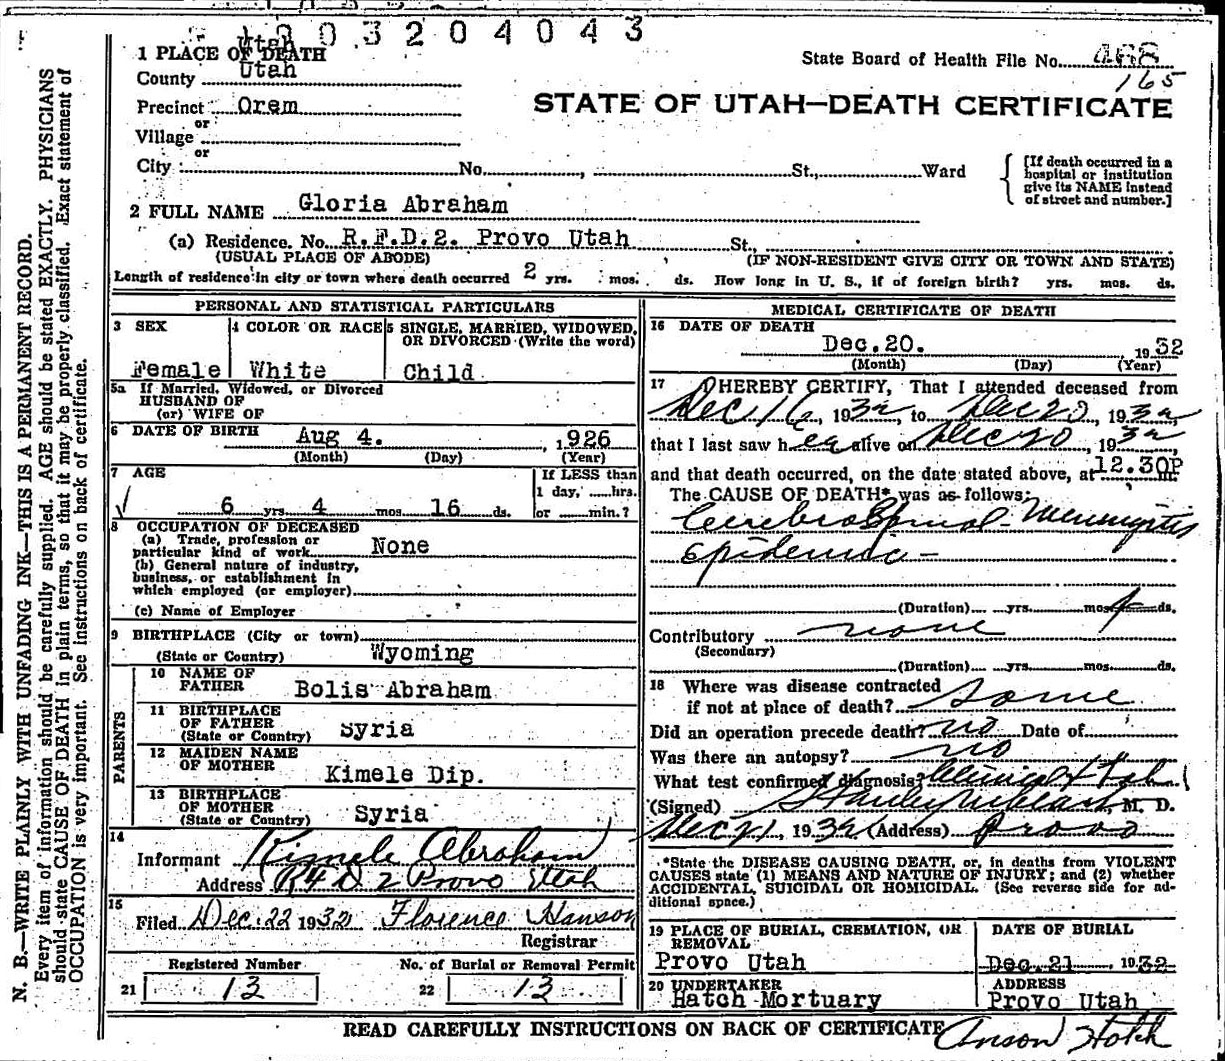 3 0 3 2 0 4 0 4 3
State Board of Health File No. 468
165
1 PLACE OF DEATH
Utah
County Utah
STATE OF UTAH—DEATH CERTIFICATE
Precinct Orem
or
Village
or
City No. , St., Ward
[If death occurred in a
hospital or institution
give its NAME instead
of street and number.]
2 FULL NAME Gloria Abraham
(a) Residence. No. R.F.D.2. Provo Utah St.,
(USUAL PLACE OF ABODE) (IF NON-RESIDENT GIVE CITY OR TOWN AND STATE)
Length of residence in city or town where death occurred 2 yrs. mos. ds. How long in U. S., if of foreign birth? yrs. mos. ds.
PERSONAL AND STATISTICAL PARTICULARS
3 SEX
Female
4 COLOR OR RACE
White
5 SINGLE, MARRIED, WIDOWED,
OR DIVORCED (Write the word)
Child
5a If Married, Widowed, or Divorced
HUSBAND OF
(or) WIFE OF
6 DATE OF BIRTH Aug 4. , 1926
(Month) (Day) (Year)
7 AGE
6 yrs. 4 mos. 16 ds.
If LESS than
1 day, ......hrs.
or ......min.?
8 OCCUPATION OF DECEASED
(a) Trade, profession or
particular kind of work None
(b) General nature of industry,
business, or establishment in
which employed (or employer)
(c) Name of Employer
9 BIRTHPLACE (City or town)
(State or Country) Wyoming
PARENTS
10 NAME OF
FATHER Bolis Abraham
11 BIRTHPLACE
OF FATHER
(State or Country) Syria
12 MAIDEN NAME
OF MOTHER Kimele Dip.
13 BIRTHPLACE
OF MOTHER
(State or Country) Syria
14
Informant Kimele Abraham
Address R F D 2 Provo Utah
15
Filed Dec. 22 1932 Florence Hanson
Registrar
Registered Number
21 13
No. of Burial or Removal Permit
22 13
MEDICAL CERTIFICATE OF DEATH
16 DATE OF DEATH
Dec.20. , 1932
(Month) (Day) (Year)
17 I HEREBY CERTIFY, That I attended deceased from
Dec 16, 1932, to Dec 20, 1932
that I last saw her alive on Dec 20, 1932
and that death occurred, on the date stated above, at 12.30P m.
The CAUSE OF DEATH* was as follows:
Cerebro Spinal Meningitis
epidemic —
(Duration) yrs. mos. 4 ds.
Contributory none
(Secondary)
(Duration) yrs. mos. ds.
18 Where was disease contracted
if not at place of death?
Did an operation precede death? no Date of
Was there an autopsy? no
What test confirmed diagnosis? Clinical &
(Signed) Stanley M. D.
Dec 21 1932 (Address) Provo
*State the DISEASE CAUSING DEATH, or, in deaths from VIOLENT
CAUSES state (1) MEANS AND NATURE OF INJURY; and (2) whether
ACCIDENTAL, SUICIDAL OR HOMICIDAL. (See reverse side for ad-
ditional space.)
19 PLACE OF BURIAL, CREMATION, OR
REMOVAL
Provo Utah
DATE OF BURIAL
Dec. 21 , 1932
20 UNDERTAKER
Hatch Mortuary
ADDRESS
Provo Utah
READ CAREFULLY INSTRUCTIONS ON BACK OF CERTIFICATE
Anson Hatch
N. B.—WRITE PLAINLY WITH UNFADING INK—THIS IS A PERMANENT RECORD.
Every item of information should be carefully supplied. AGE should be stated EXACTLY. PHYSICIANS
should state CAUSE OF DEATH in plain terms, so that it may be properly classified. Exact statement of
OCCUPATION is very important. See instructions on back of certificate.